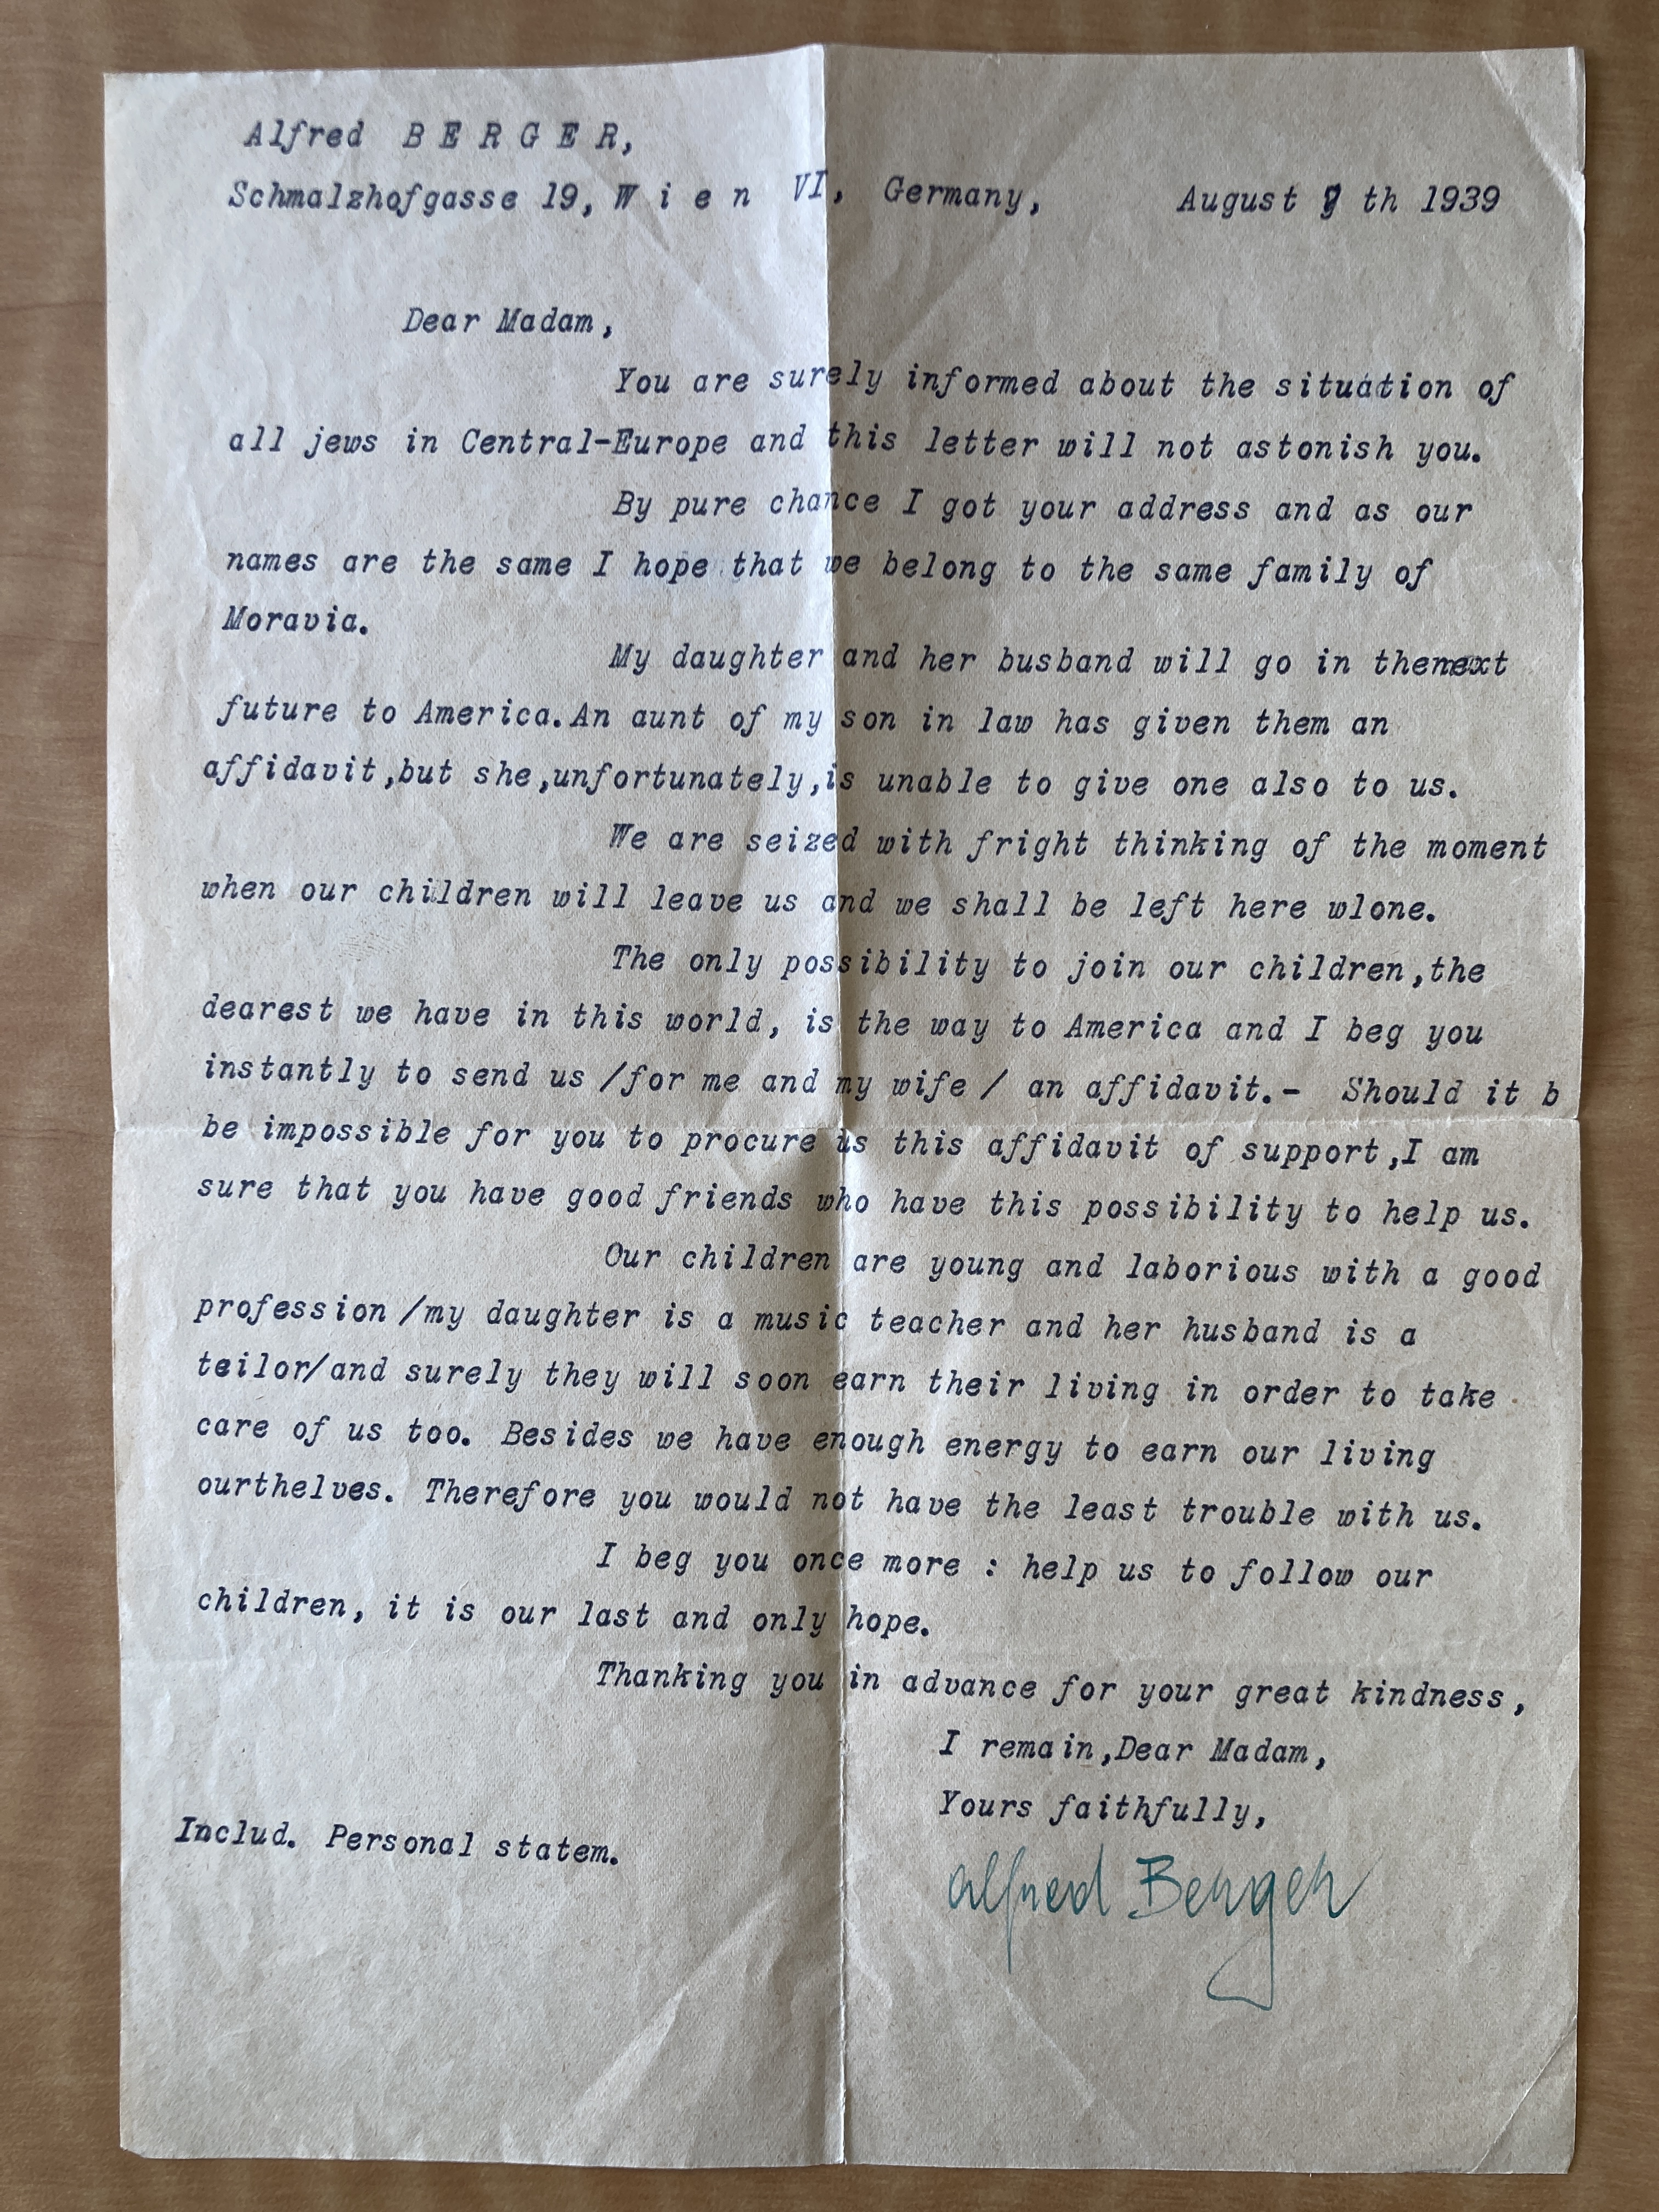 Alfred B E R G E R,
Schmalzhofgasse 19, W i e n VI, Germany, August th 1939
Dear Madam,
You are surely informed about the situation of
all jews in Central-Europe and this letter will not astonish you.
By pure chance I got your address and as our
names are the same I hope that we belong to the same family of
Moravia.
My daughter and her busband will go in thenext
future to America.An aunt of my son in law has given them an
affidavit,but she,unfortunately,is unable to give one also to us.
We are seized with fright thinking of the moment
when our children will leave us and we shall be left here wlone.
The only possibility to join our children,the
dearest we have in this world, is the way to America and I beg you
instantly to send us /for me and my wife / an affidavit.- Should it b
be impossible for you to procure us this affidavit of support,I am
sure that you have good friends who have this possibility to help us.
Our children are young and laborious with a good
profession /my daughter is a music teacher and her husband is a
teilor/and surely they will soon earn their living in order to take
care of us too. Besides we have enough energy to earn our living
ourthelves. Therefore you would not have the least trouble with us.
I beg you once more : help us to follow our
children, it is our last and only hope.
Thanking you in advance for your great kindness,
I remain,Dear Madam,
Yours faithfully,
Includ. Personal statem.
Alfred Berger